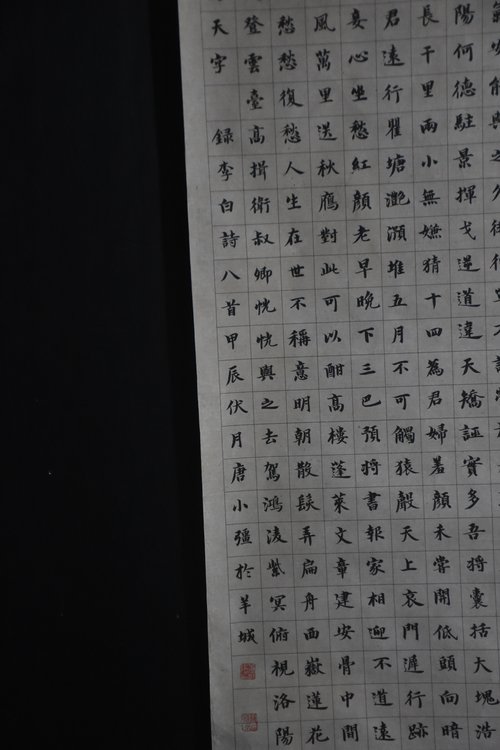 陽何德駐景揮戈逆道違天矯誣實多吾將囊括大塊浩
長干里兩小無嫌猜十四為君婦羞顏未嘗開低頭向暗
君遠行瞿塘灩澦堆五月不可觸猿聲天上哀門遲行跡
妾心坐愁紅顏老早晚下三巴預將書報家相迎不道遠
風萬里送秋鴈對此可以酣高樓蓬萊文章建安骨中間
愁愁復愁人生在世不稱意明朝散髮弄扁舟西嶽蓮花
登雲臺高揖衛叔卿恍恍與之去駕鴻淩紫冥俯視洛陽
天字 錄李白詩八首甲辰伏月唐小彊於羊城